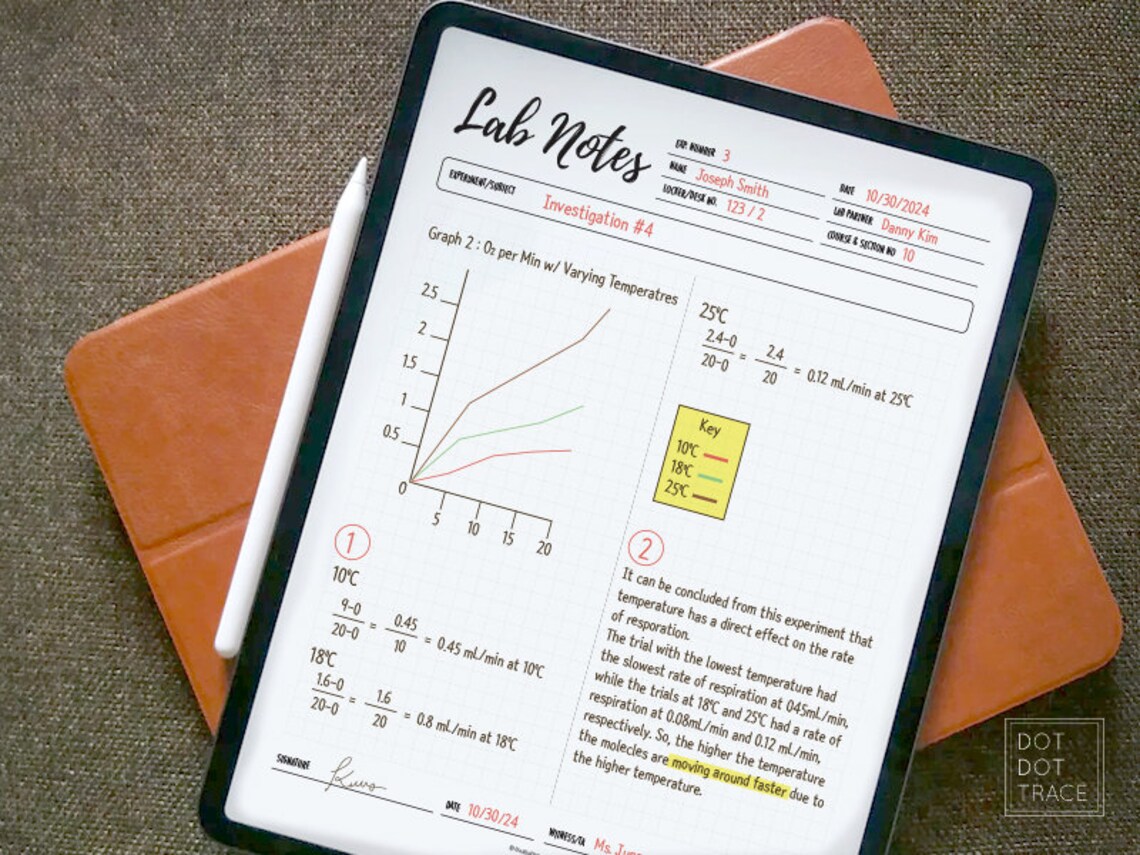 Lab Notes
EXP. NUMBER 3
NAME Joseph Smith
LOCKER/DESK NO. 123 / 2
DATE 10/30/2024
LAB PARTNER Danny Kim
COURSE & SECTION NO 10
EXPERIMENT/SUBJECT Investigation #4
Graph 2 : O₂ per Min w/ Varying Temperatres
2.5
2
1.5
1
0.5
0
5 10 15 20
1
10℃
9-0
20-0
=
0.45
10
= 0.45 mL/min at 10℃
18℃
1.6-0
20-0
=
1.6
20
= 0.8 mL/min at 18℃
25℃
2.4-0
20-0
=
2.4
20
= 0.12 mL/min at 25℃
Key
10℃
18℃
25℃
2
It can be concluded from this experiment that
temperature has a direct effect on the rate
of resporation.
The trial with the lowest temperature had
the slowest rate of respiration at 045mL/min,
while the trials at 18℃ and 25℃ had a rate of
respiration at 0.08mL/min and 0.12 mL/min,
respectively. So, the higher the temperature
the molecles are moving around faster due to
the higher temperature.
SIGNATURE
DATE 10/30/24
WITNESS/TA Ms.
DOT
DOT
TRACE